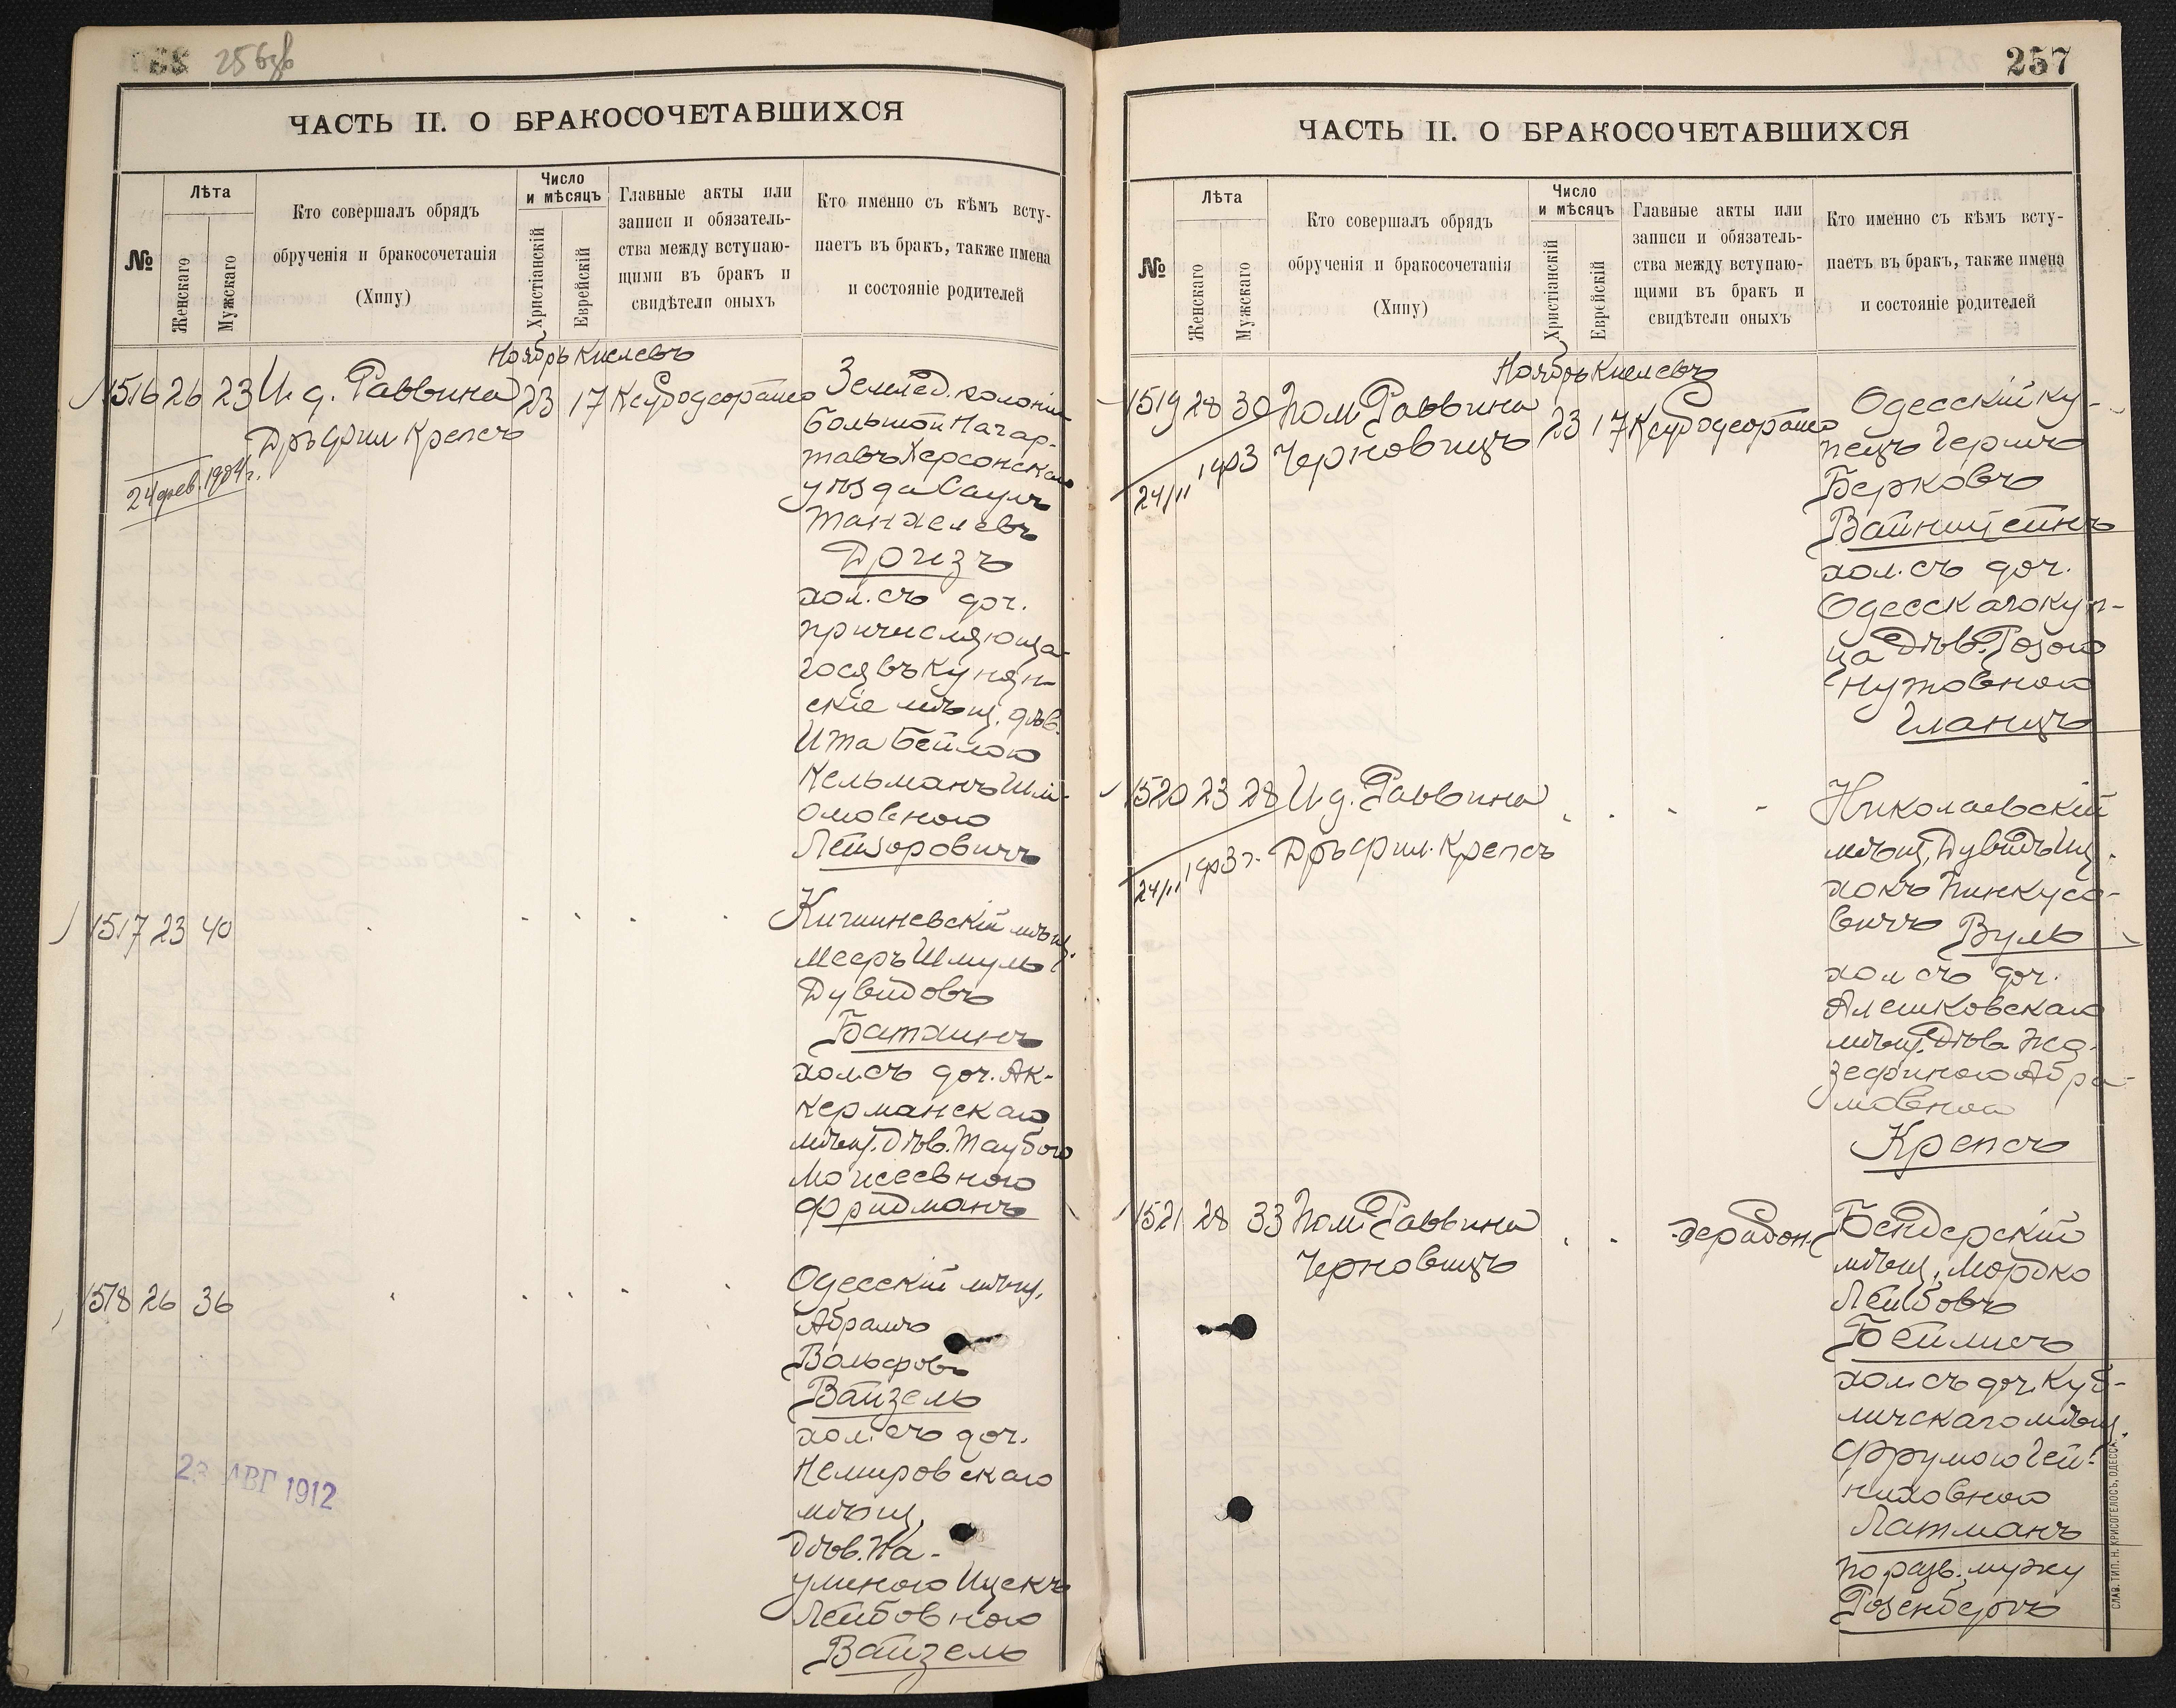 256 об
ЧАСТЬ II. О БРАКОСОЧЕТАВШИХСЯ
№
Лѣта
Женскаго
Мужскаго
Кто совершалъ обрядъ
обрученія и бракосочетанія
(Хипу)
Число
и мѣсяцъ
Христіанскій
Еврейскій
Главные акты или
записи и обязатель-
ства между вступаю-
щими въ бракъ и
свидѣтели оныхъ
Кто именно съ кѣмъ всту-
паетъ въ бракъ, также имена
и состояніе родителей
Ноябрь Кислевъ
1516 26 23 И. д. Раввина 23 17 Ксубодеорайсо
Дръ фил Крепсъ
24 фев. 1904 г.
Землед. колоніи
большой Нагар-
тавъ Херсонскаго
уѣзда Саулъ
Танхелевъ
Дризъ
хол. съ доч.
причисляюща-
гося въ Кунян-
скіе мѣщ. дѣв.
Ита Бейлою
Кельманъ Шлі-
омовною
Лейзоровичъ
1517 23 40
Кишиневскій мѣщ.
Мееръ Шмуль
Дувидовъ
Батхинъ
хол. съ доч. Ак-
керманскаго
мѣщ. дѣв. Таубою
Моисеевною
Фридманъ
1518 26 36
Одесскій мѣщ.
Абрамъ
Вольфовъ
Вайзель
хол. съ доч.
Немировскаго
мѣщ.
дѣв. Ха-
Лейбовною
Вайзель
23 АВГ 1912
257
ЧАСТЬ II. О БРАКОСОЧЕТАВШИХСЯ
№
Лѣта
Женскаго
Мужскаго
Кто совершалъ обрядъ
обрученія и бракосочетанія
(Хипу)
Число
и мѣсяцъ
Христіанскій
Еврейскій
Главные акты или
записи и обязатель-
ства между вступаю-
щими въ бракъ и
свидѣтели оныхъ
Кто именно съ кѣмъ всту-
паетъ въ бракъ, также имена
и состояніе родителей
Ноябрь Кислевъ
1519 28 30 Пом. Раввина 23 17 Ксубодеорайсо
Черновицъ
24/11 1903
Одесскій ку-
пецъ Гершъ
Берковъ
Вайнштейнъ
хол. съ доч.
Одесскаго куп-
ца Дѣв. Розою
Нутовною
Гланцъ
1520 23 28 И. д. Раввина
Дръ фил. Крепсъ
24/11 1903 г.
Николаевскій
мѣщ. Дувидъ Иц-
хокъ Пинкусо-
вичъ Вуль
хол съ доч.
Алешковскаго
мѣщ. Дѣва Жо-
зефиною Абра-
мовною
Крепсъ
1521 28 33 Пом. Раввина
Черновицъ
Бендерскій
мѣщ. Мордко
Лейбовъ
Бейлисъ
хол. съ доч. Куб-
личскаго мѣщ.
Фрумою Гей-
ниховною
Латманъ
по разв. мужу
Розенбергъ
СЛАВ. ТИП. Н. ХРИСОГЕЛОСЪ, ОДЕССА.